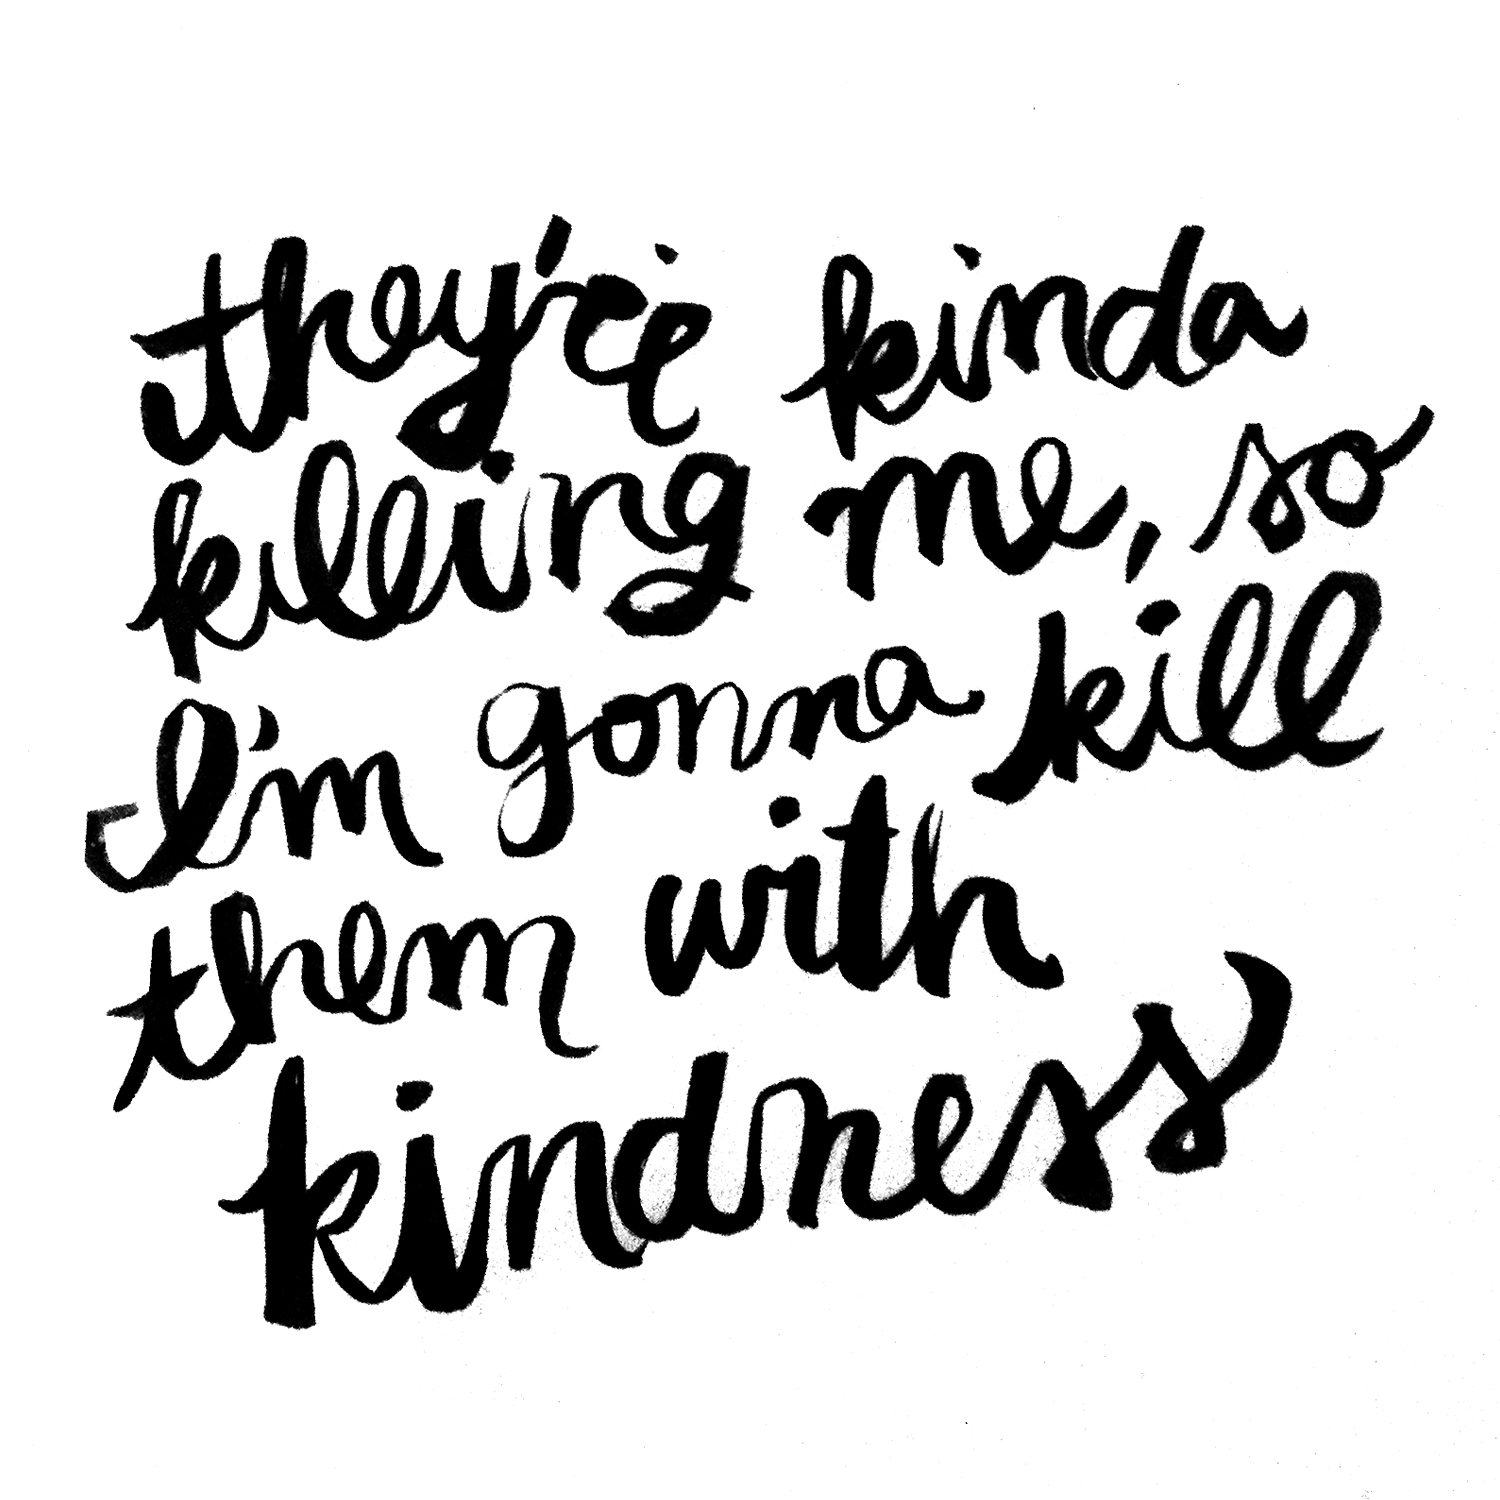 they're kinda
killing me, so
I'm gonna kill
them with
kindness